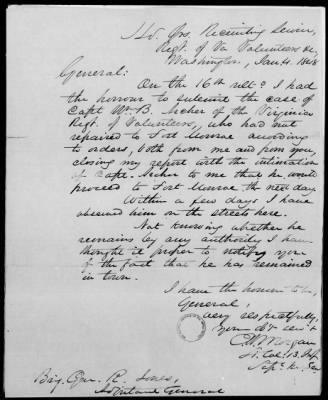 Hd. Qrs. Recruiting Service,
Regt. of Va Volunteers &c,
Washington, Jan. 4. 1848
General:
On the 16th ult? I had
the honour to submit the case of
Capt Wm. B. Archer of the Virginia
Regt. of Volunteers, who had not
repaired to Fort Monroe according
to orders, both from me and from you,
closing my report with the intimation
of Capt. Archer to me that he would
proceed to Fort Monroe the next day.
Within a few days I have
observed him on the streets here.
Not knowing whether he
remains by any authority I have
thought it proper to notify you
of the fact that he has remained
in town.
I have the honour to be,
General,
very respectfully,
your obt servt
Morgan
Lt. Col. 13. Inf.
Supt.
Brig. Gen. R. Jones,
Adjutant General